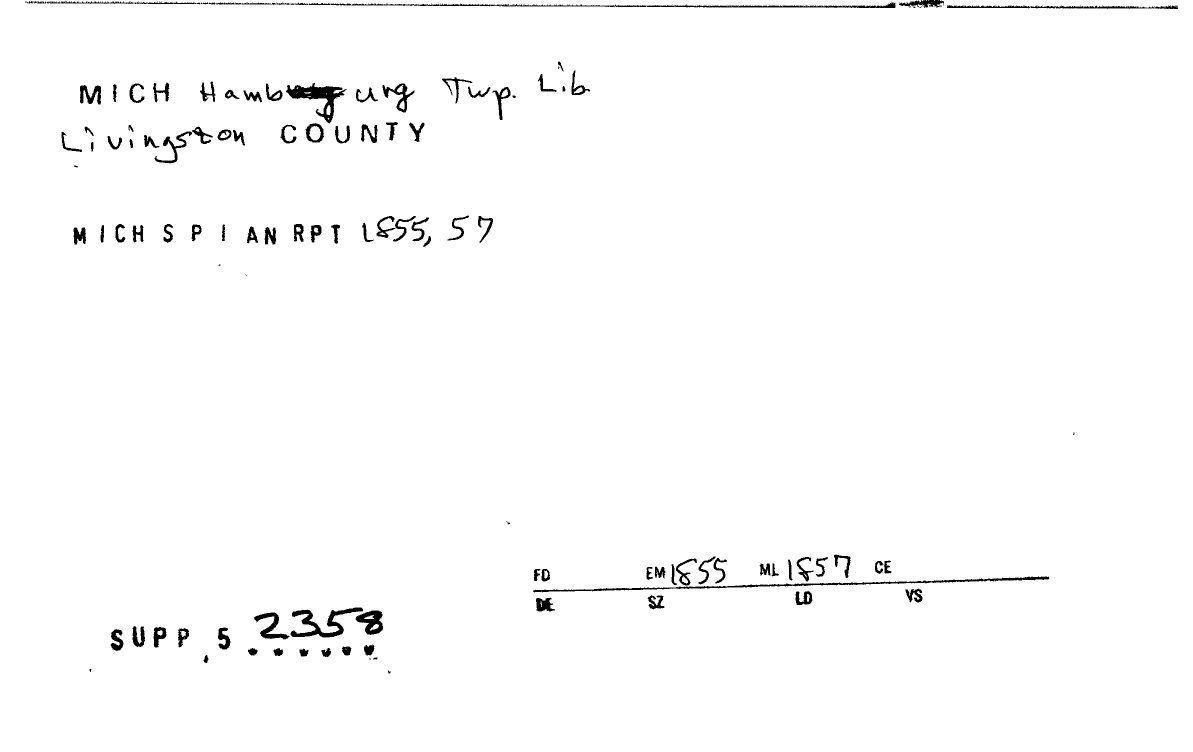 MICH Hamburg Twp. Lib
Livingston COUNTY
MICH S P I AN RPT 1855, 57
FD EM 1855 ML 1857 CE
DE SZ LD VS
SUPP. 5 2358